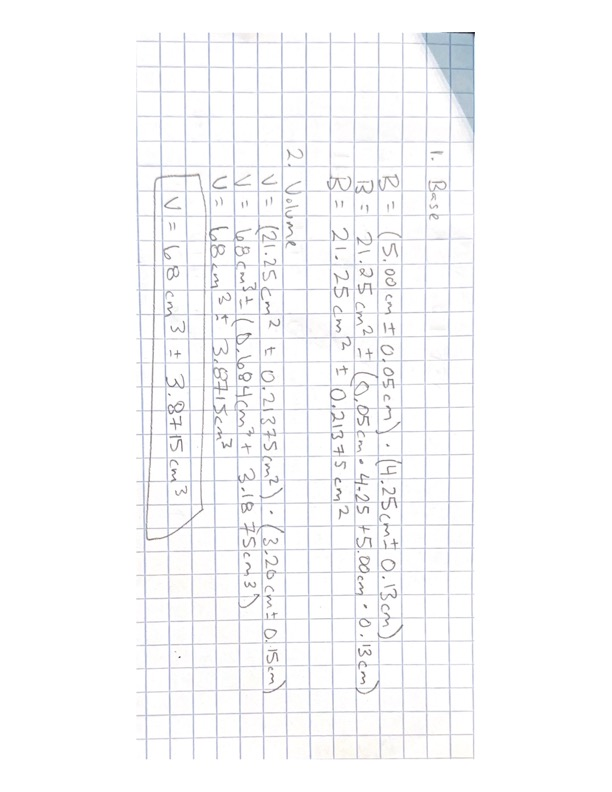 1. Base
B = (5.00 cm ± 0.05 cm) · (4.25 cm ± 0.13 cm)
B = 21.25 cm² ± (0.05 cm · 4.25 + 5.00 cm · 0.13 cm)
B = 21.25 cm² ± 0.21375 cm²
2. Volume
V = (21.25 cm² ± 0.21375 cm²) · (3.20 cm ± 0.15 cm)
V = 68 cm³ ± (0.684 cm³ + 3.1875 cm³)
V = 68 cm³ ± 3.8715 cm³
V = 68 cm³ ± 3.8715 cm³